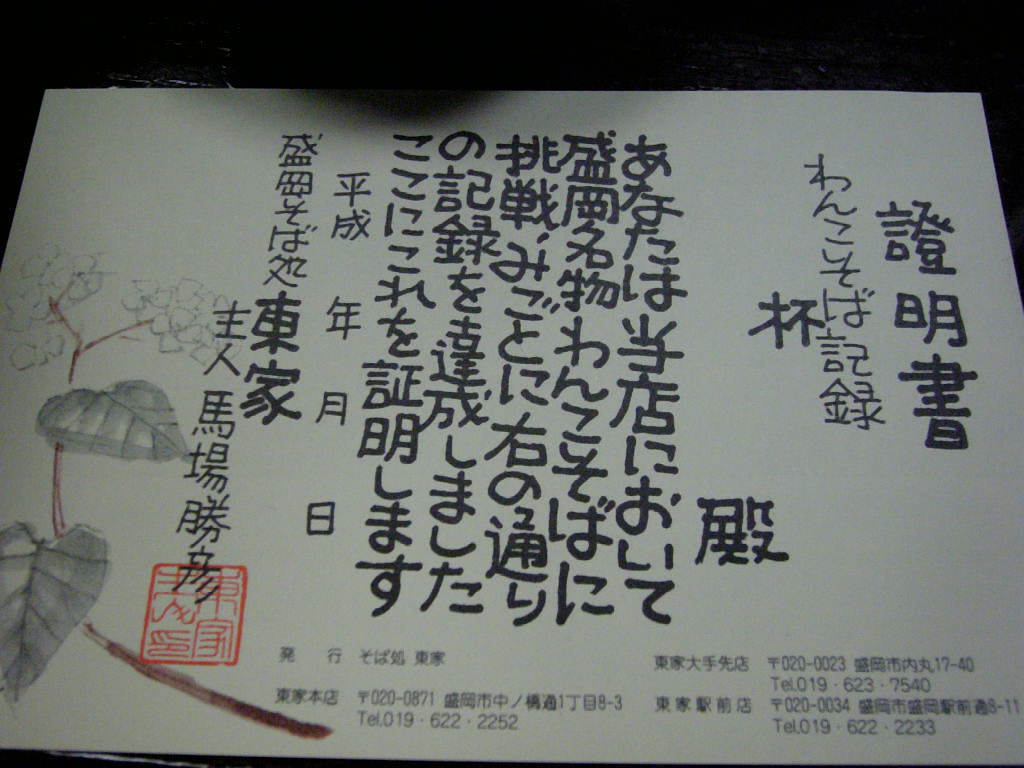 證明書
わんこそば記録
杯
殿
あなたは当店において
盛岡名物わんこそばに
挑戦、みごとに右の通り
の記録を達成しました
ここにこれを証明します
平成 年 月 日
盛岡そば処 東家
主人 馬場勝彦
発 行 そば処 東家
東家本店 〒020-0871 盛岡市中ノ橋通1丁目8-3
Tel.019・622・2252
東家大手先店 〒020-0023 盛岡市内丸17-40
Tel.019・623・7540
東家駅前店 〒020-0034 盛岡市盛岡駅前通8-11
Tel.019・622・2233